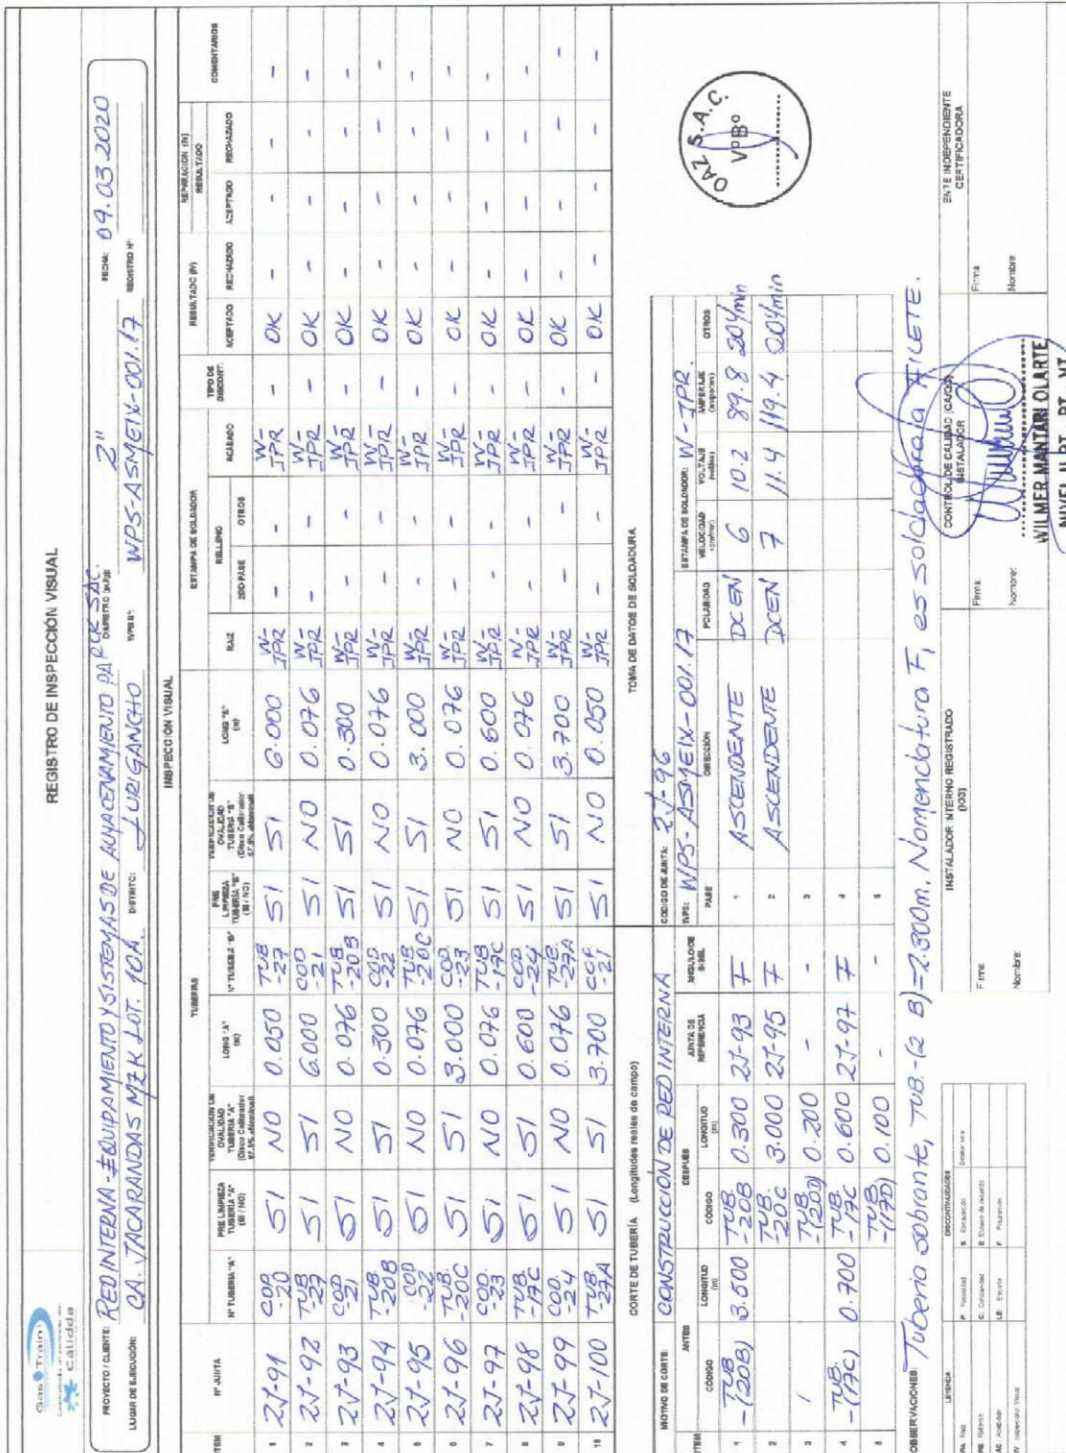 Gas Train
Cálidda
REGISTRO DE INSPECCIÓN VISUAL
PROYECTO / CLIENTE: RED INTERNA - EQUIPAMIENTO Y SISTEMAS DE ALMACENAMIENTO PA PCK SAC. FECHA: 09.03.2020
LUGAR DE EJECUCIÓN: CA. JACARANDAS MZ K LOT. 10A DISTRITO: LURIGANCHO DIAMETRO 2" WPS Nº: WPS-ASMEIX-001.17 REGISTRO Nº:
INSPECCIÓN VISUAL
TUBERIAS ESTAMPA DE SOLDADOR RESULTADO (IV) REPARACION (IV) RESULTADO
ITEM Nº JUNTA Nº TUBERIA "A" PRE LIMPIEZA TUBERIA "A" (SI / NO) OVALIDAD TUBERIA "A" LONG "A" (m) Nº TUBERIA "B" PRE LIMPIEZA TUBERIA "B" (SI / NO) OVALIDAD TUBERIA "B" LONG "B" (m) RAIZ RELLENO 2DO PASE OTROS ACABADO TIPO DE DISCONT. ACEPTADO RECHAZADO ACEPTADO RECHAZADO COMENTARIOS
1 2J-91 COD -20 SI NO 0.050 TUB -27 SI SI 6.000 W-JPR - - W-JPR - OK - - - -
2 2J-92 TUB -27 SI SI 6.000 COD -21 SI NO 0.076 W-JPR - - W-JPR - OK - - - -
3 2J-93 COD -21 SI NO 0.076 TUB. -20B SI SI 0.300 W-JPR - - W-JPR - OK - - - -
4 2J-94 TUB. -20B SI SI 0.300 COD -22 SI NO 0.076 W-JPR - - W-JPR - OK - - - -
5 2J-95 COD -22 SI NO 0.076 TUB -20C SI SI 3.000 W-JPR - - W-JPR - OK - - - -
6 2J-96 TUB. -20C SI SI 3.000 COD. -23 SI NO 0.076 W-JPR - - W-JPR - OK - - - -
7 2J-97 COD. -23 SI NO 0.076 TUB -17C SI SI 0.600 W-JPR - - W-JPR - OK - - - -
8 2J-98 TUB -17C SI SI 0.600 COD. -24 SI NO 0.076 W-JPR - - W-JPR - OK - - - -
9 2J-99 COD -24 SI NO 0.076 TUB. -27A SI SI 3.700 W-JPR - - W-JPR - OK - - - -
10 2J-100 TUB -27A SI SI 3.700 COD -21 SI NO 0.050 W-JPR - - W-JPR - OK - - - -
CORTE DE TUBERÍA (Longitudes reales de campo)
MOTIVO DE CORTE: CONSTRUCCIÓN DE RED INTERNA
ANTES DESPUES
ITEM CODIGO LONGITUD (m) CODIGO LONGITUD (m) JUNTA DE REFERENCIA ANGULO DE BISEL
1 TUB -(20B) 3.500 TUB -20B 0.300 2J-93 F
2 TUB. -20C 3.000 2J-95 F
3 / TUB -(20D) 0.200 - -
4 TUB. -(17C) 0.700 TUB. -17C 0.600 2J-97 F
5 TUB -(17D) 0.100 - -
TOMA DE DATOS DE SOLDADURA
CODIGO DE JUNTA: 2J-96
WPS: WPS-ASMEIX-001.17 ESTAMPA DE SOLDADOR: W-JPR
PASE DIRECCIÓN POLARIDAD VELOCIDAD VOLTAJE AMPERAJE OTROS
1 ASCENDENTE DCEN 6 10.2 89.8 20 l/min
2 ASCENDENTE DCEN 7 11.4 119.4 20 l/min
3
4
5
OAZ S.A.C.
VºBº
OBSERVACIONES: Tuberia sobrante, TUB.-(2 B)=2.300m. Nomenclatura F, es soldadura a FILETE.
LEYENDA DISCONTINUIDADES
INSTALADOR INTERNO REGISTRADO
Firma
Nombre:
CONTROL DE CALIDAD (CA/QC)
INSTALADOR
Firma:
Nombre:
WILMER MANTARI OLARTE
NIVEL II PT - VT
ENTE INDEPENDIENTE
CERTIFICADORA
Firma
Nombre